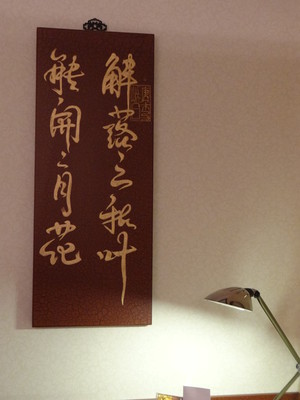 解落三秋叶
能开二月花